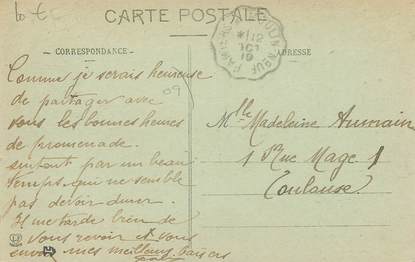 CARTE POSTALE
CORRESPONDANCE
ADRESSE
09
Comme je serais heureuse
de partager avec
vous les bonnes heures
de promenade.
surtout par un beau
temps qui ne semble
pas devoir durer.
Il me tarde bien de
vous revoir et vous
envoie mes meilleurs baisers
Mlle Madeleine Aumain
1 Rue Mage 1
Toulouse